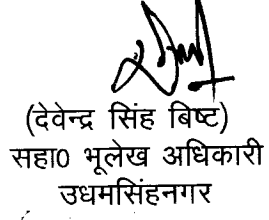 (देवेन्द्र सिंह बिष्ट)
सहा0 भूलेख अधिकारी
उधमसिंहनगर